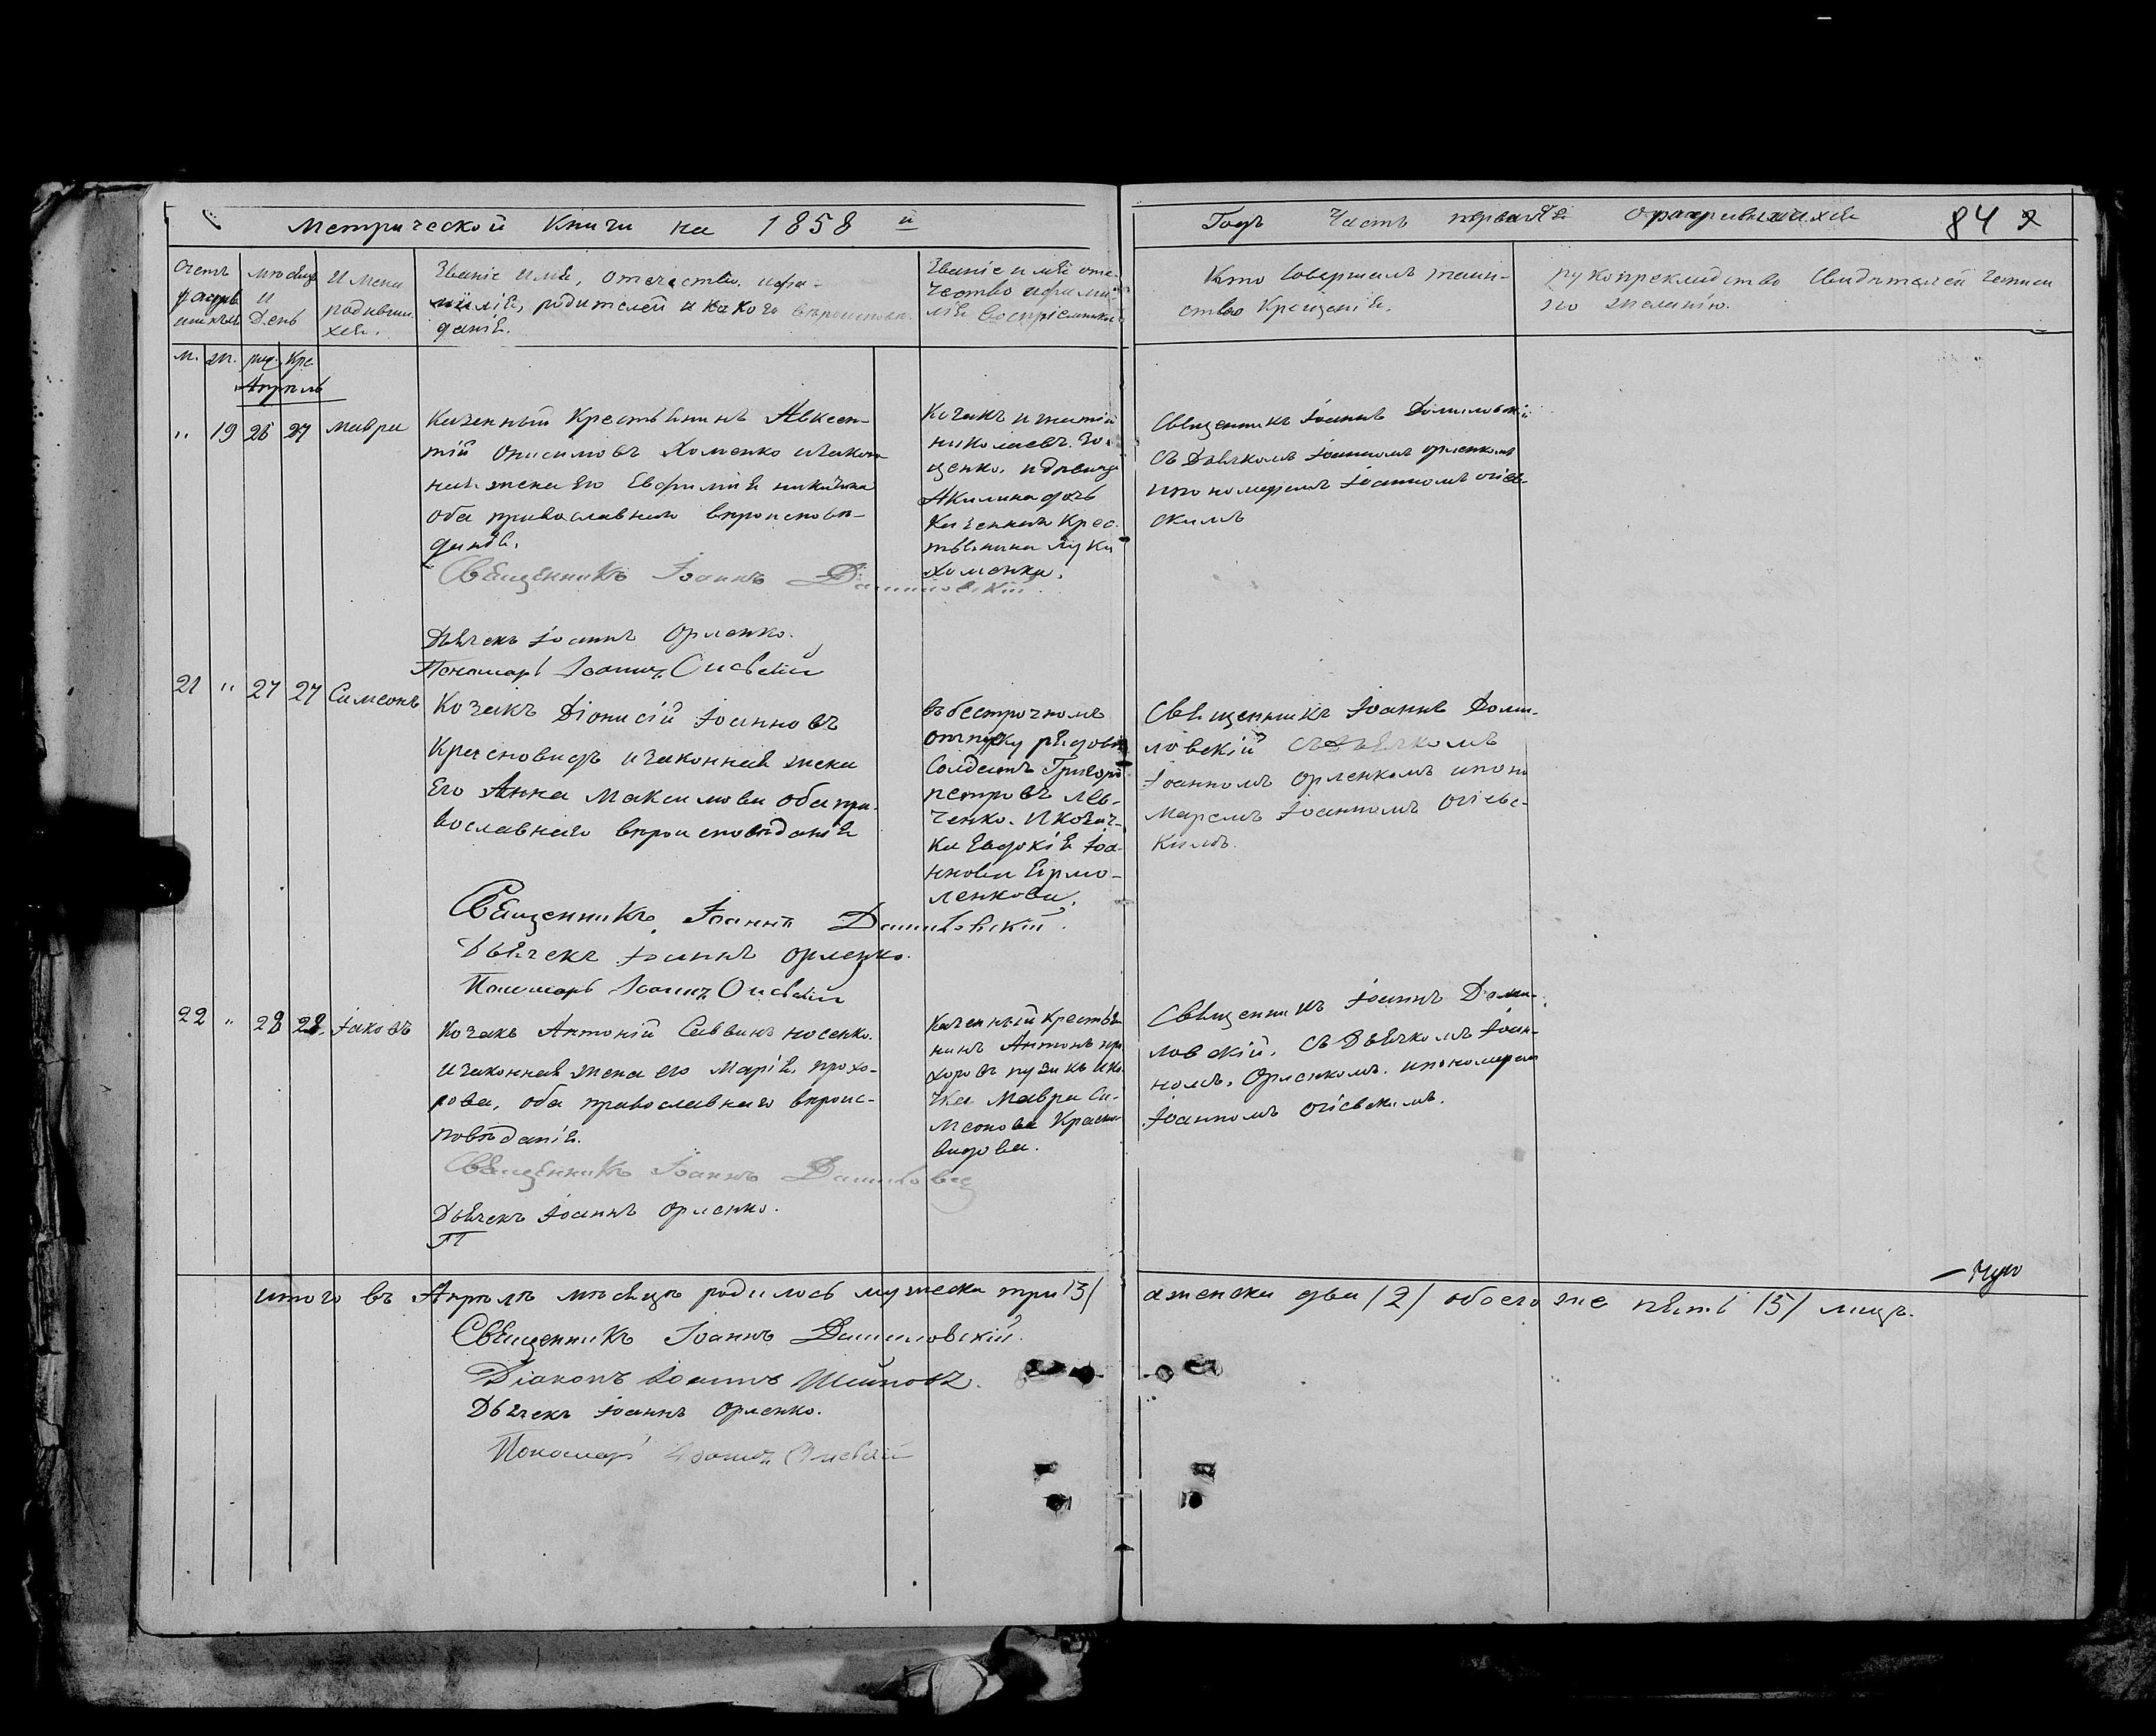 Метрической Книги на 1858 й
Годъ Часть первая о родившихся 84
Счетъ
мѣсяцъ
и
День
Имена
родивши
хся.
Званіе имя, отечество, ифа-
милія, родителей и какого вѣроисповѣ.
данія.
Званіе имя оте-
чество ифами
лія воспріемник
Кто совершалъ таин-
ство Крещенія.
рукоприкладство свидѣтелей записи
по желанію.
м. ж. рож. Кре
Апрѣль
" 19 26 27 Мавра
Казенный Крестьянинъ Авксен-
тій Онисимовъ Хоменко изакон
ная жена его Евфимія никитина
оба православнаго вѣроисповѣ-
данія.
Священникъ Іоаннъ Даниловскій
Дьячекъ Іоаннъ Орленко.
Пономарь Іоаннъ
Козакъ
николаевъ
щенко. идѣвица
Акилина дочь
Казеннаго Крес
тьянина Луки
Хоменка.
Священникъ Іоаннъ Даниловскій
съ Дьячкомъ Іоанномъ орленкомъ
ипономаремъ Іоанномъ
скимъ
21 " 27 27 Симеонъ
Козакъ Діонисій Іоанновъ
Красновидъ изаконная жена
Его Анна Максимова оба пра-
вославнаго вѣроисповѣданія
Священникъ Іоаннъ Даниловскій
Дьячекъ Іоаннъ Орленко.
Пономарь Іоаннъ
въ безсрочномъ
отпуску рядовой
Солдатъ Григорій
петровъ Лев-
ченко. И козач-
ка Евдокія Іоа-
ннова Ермо-
ленкова.
Священникъ Іоаннъ Дани-
ловскій съ Дьячкомъ
Іоанномъ Орленкомъ ипоно
маремъ Іоанномъ
кимъ.
22 " 28 28. Іаковъ
Козакъ Антоній Саввинъ носенко.
изаконная жена его Марія, прохо-
рова, оба православнаго вѣроис-
повѣданія.
Священникъ Іоаннъ
Дьячекъ Іоаннъ Орленко.
П
Казенный Крестья
нинъ Антонъ про
хоровъ пузикъ ико
чка Мавра Си-
меонова Красно
видова.
Священникъ Іоаннъ Дани-
ловскій, съ Дьячкомъ Іоан-
номъ, Орленкомъ. ипономарем
Іоанномъ
итого въ Апрѣлѣ мѣсяцѣ родилось мужеска три /3/ аженска два /2/ обоего же пять /5/ лицъ.
Священникъ Іоаннъ Даниловскій.
Діаконъ Іоаннъ
Дьячекъ Іоаннъ Орленко.
Пономарь Іоаннъ